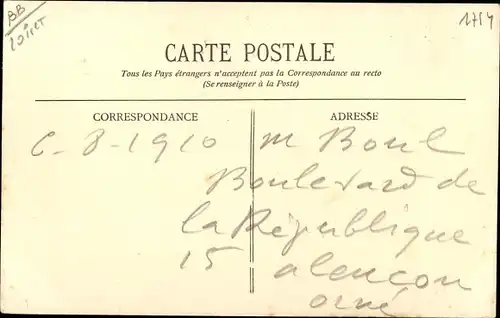 BB
Loiret
1714
CARTE POSTALE
Tous les Pays étrangers n'acceptent pas la Correspondance au recto
(Se renseigner à la Poste)
CORRESPONDANCE
6-8-1910
ADRESSE
M Boul
Boulevard de
la République
15 alençon
orne